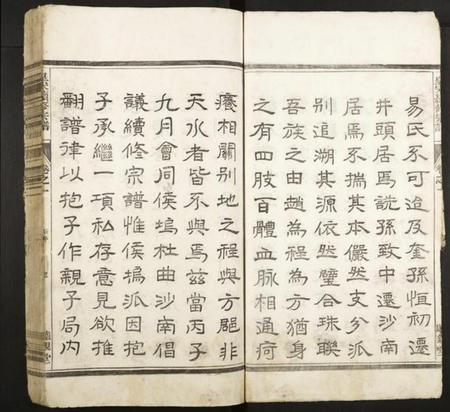 易氏系可追及奎孫恒初遷
井頭居焉說孫致中遷沙南
居焉不揣其本儼然支分派
別追溯其源依然璧合珠聯
吾族之由趙為程為方猶身
之有四肢百體血脈相通疴
癢相關別地之程與方郡非
天水者皆不與焉茲當丙子
九月會同侯塢杜曲沙南倡
議續修宗譜惟侯塢派因抱
子承繼一項私存意見欲推
翻譜律以抱子作親子局內